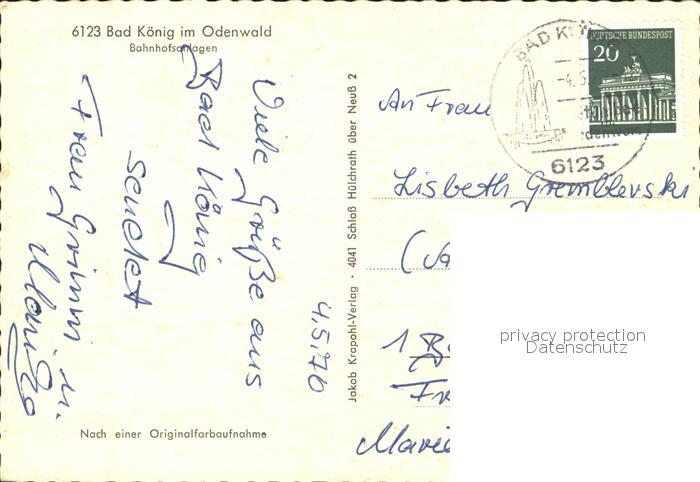 6123 Bad König im Odenwald
Bahnhofsanlagen
4.5.70
Viele Grüße aus
Bad König
sendet
Frau Grimm u.
Nach einer Originalfarbaufnahme
Jakob Krapohl-Verlag · 4041 Schloß Hülchrath über Neuß 2
BAD KÖ
-4.5
6123
DEUTSCHE BUNDESPOST
20
An Frau
Lisbeth
1 B
Fr
Marie
privacy protection
Datenschutz